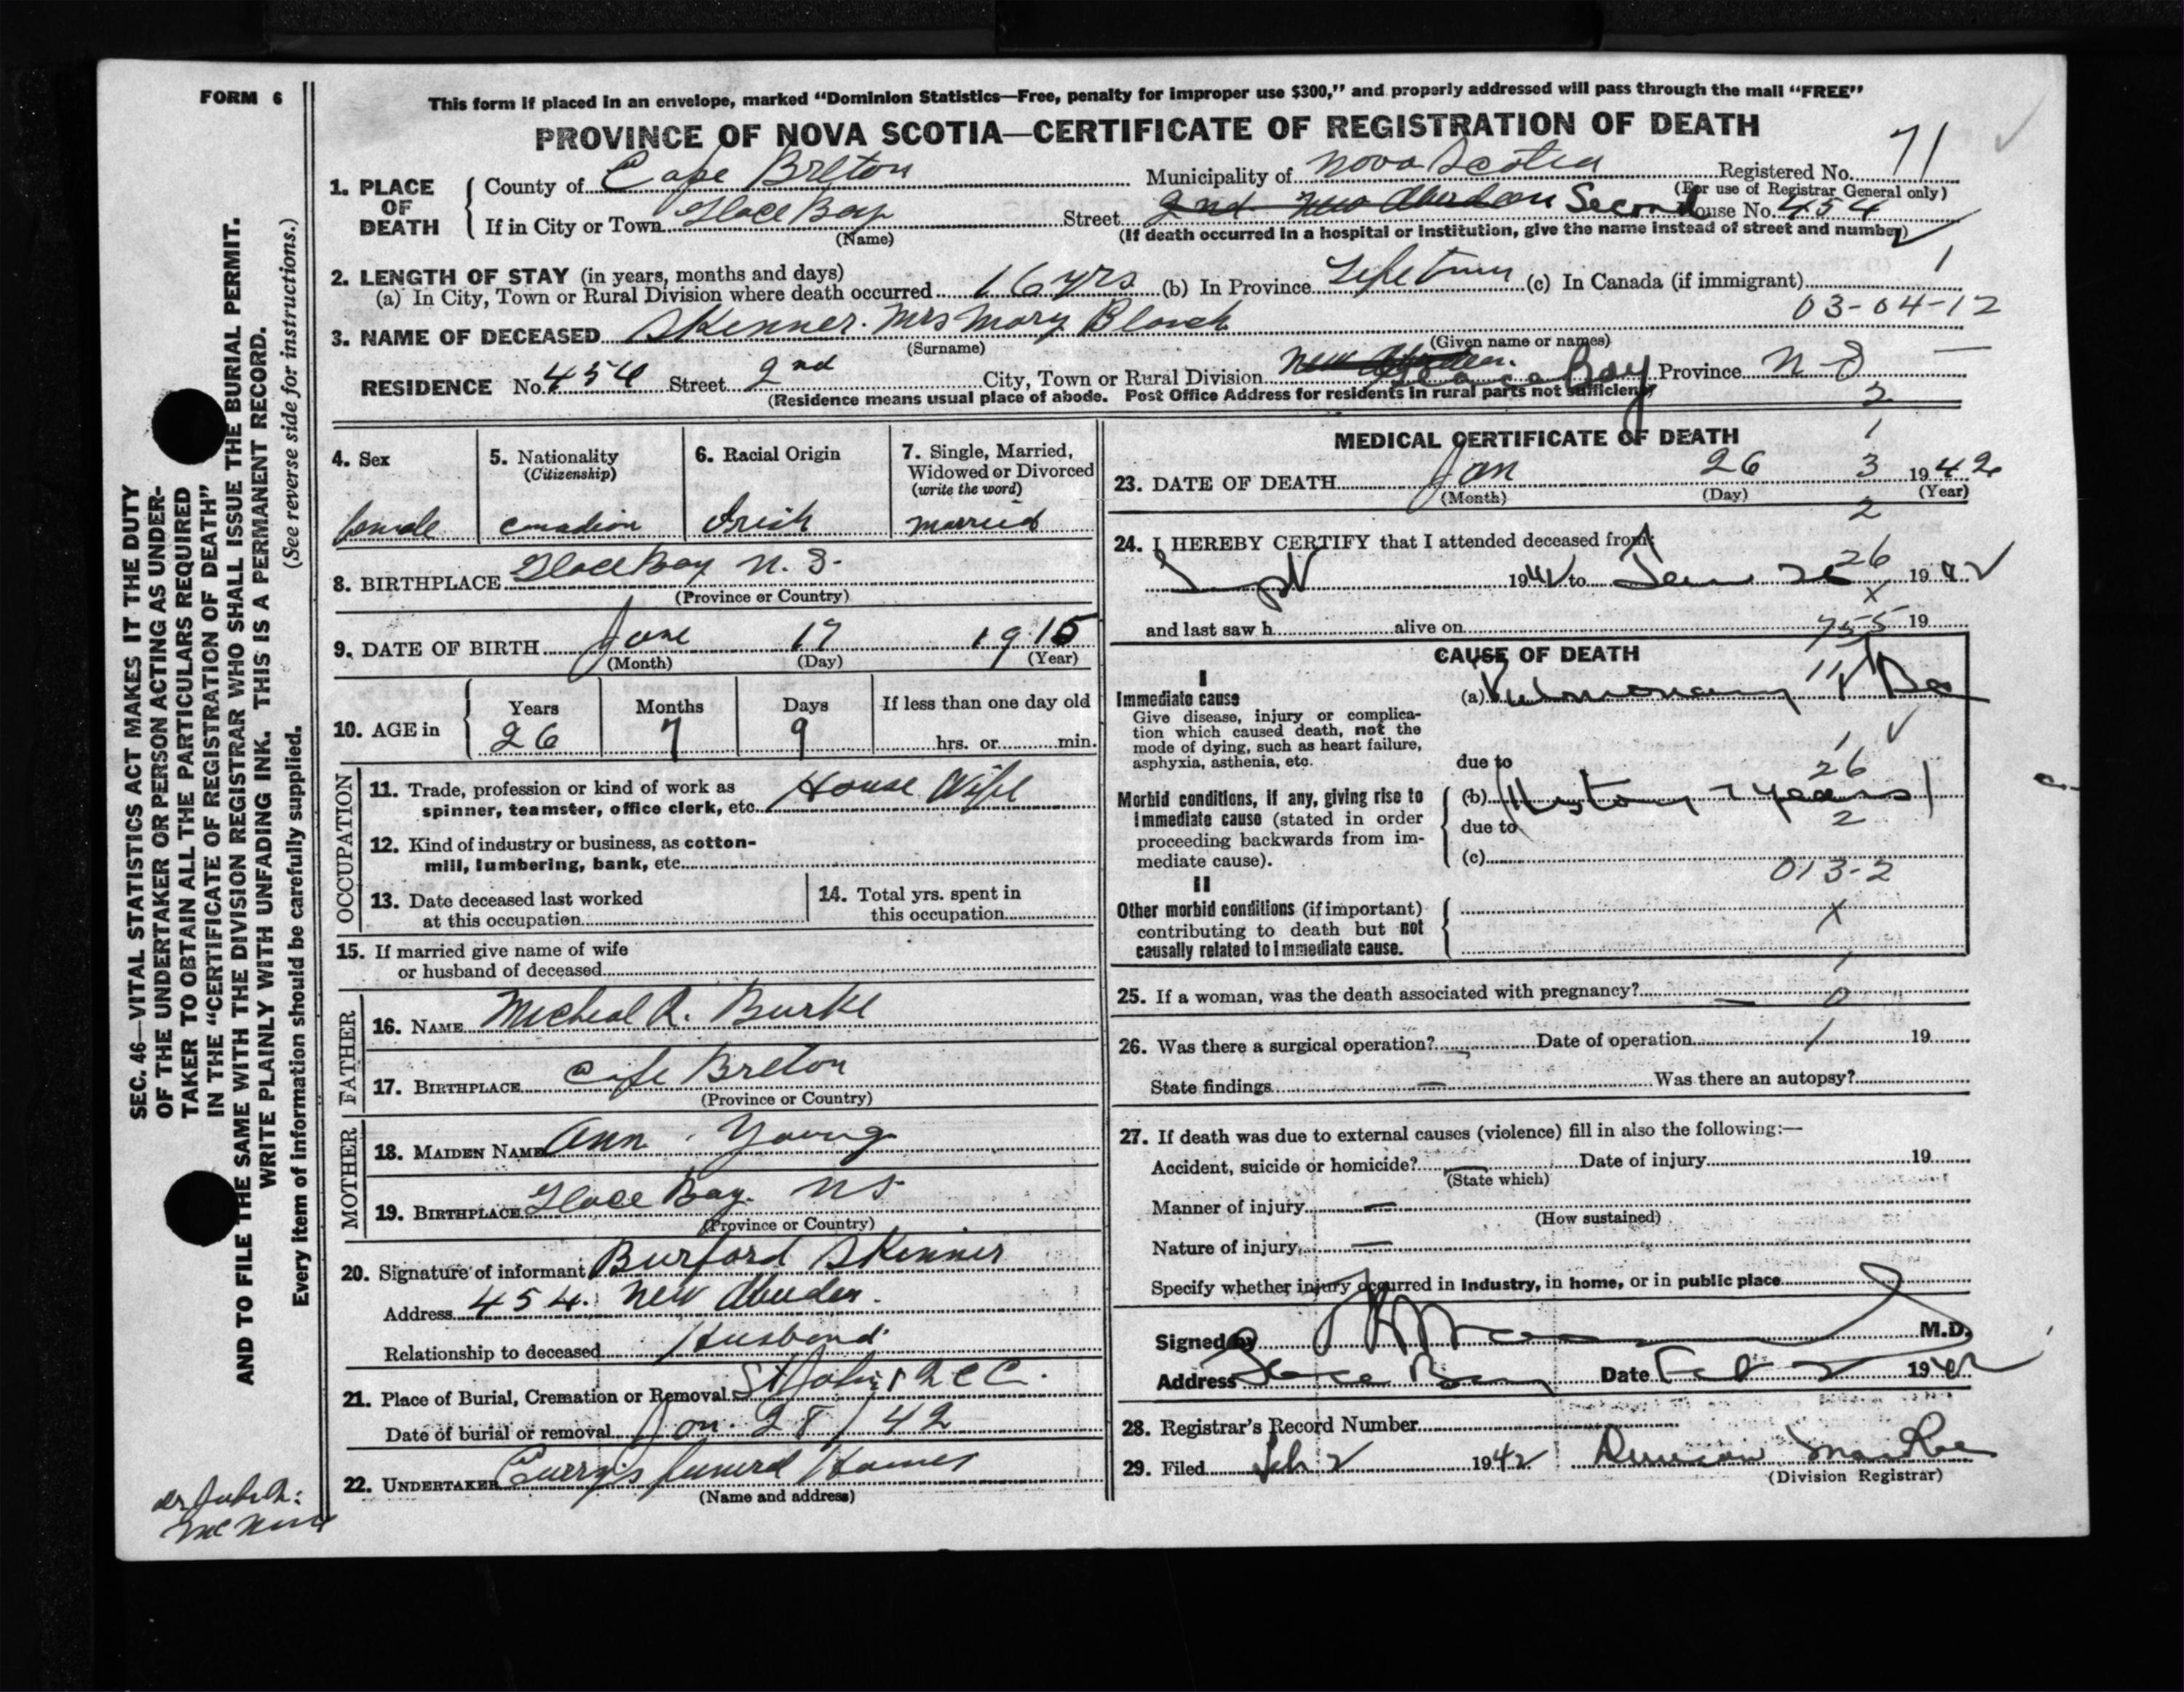 FORM 6
This form if placed in an envelope, marked “Dominion Statistics—Free, penalty for improper use $300,” and properly addressed will pass through the mail “FREE”
PROVINCE OF NOVA SCOTIA—CERTIFICATE OF REGISTRATION OF DEATH
1. PLACE OF DEATH County of Cape Breton Municipality of Nova Scotia Registered No. 71
(For use of Registrar General only)
If in City or Town Glace Bay Street 2nd New Aberdeen Second House No. 454
(Name) (If death occurred in a hospital or institution, give the name instead of street and number)
2. LENGTH OF STAY (in years, months and days) 1
(a) In City, Town or Rural Division where death occurred 16 yrs (b) In Province Life time (c) In Canada (if immigrant)
03-04-12
3. NAME OF DECEASED Skinner. Mrs Mary Blanch
(Surname) (Given name or names)
RESIDENCE No. 454 Street 2nd City, Town or Rural Division New Aberdeen. Glace Bay Province N-S
(Residence means usual place of abode. Post Office Address for residents in rural parts not sufficient)
4. Sex 5. Nationality (Citizenship) 6. Racial Origin 7. Single, Married, Widowed or Divorced (write the word)
female canadian Irish married
8. BIRTHPLACE Glace Bay N. S.
(Province or Country)
9. DATE OF BIRTH June 17 1915
(Month) (Day) (Year)
10. AGE in Years Months Days If less than one day old
26 7 9 hrs. or min.
OCCUPATION
11. Trade, profession or kind of work as spinner, teamster, office clerk, etc. House Wife
12. Kind of industry or business, as cotton-mill, lumbering, bank, etc.
13. Date deceased last worked at this occupation
14. Total yrs. spent in this occupation
15. If married give name of wife or husband of deceased
FATHER
16. NAME Micheal R. Burke
17. BIRTHPLACE Cape Breton
(Province or Country)
MOTHER
18. MAIDEN NAME Ann Young
19. BIRTHPLACE Glace Bay. NS
(Province or Country)
20. Signature of informant Burford Skinner
Address 454. New Aberden.
Relationship to deceased Husband
21. Place of Burial, Cremation or Removal St John's
Date of burial or removal Jan. 28 / 42
22. UNDERTAKER Curry's funeral Homes
(Name and address)
MEDICAL CERTIFICATE OF DEATH
23. DATE OF DEATH Jan 26 1942
(Month) (Day) (Year)
24. I HEREBY CERTIFY that I attended deceased from:
Sept 1941 to Jan 26 1942
and last saw h alive on 19
CAUSE OF DEATH
I
Immediate cause
Give disease, injury or complication which caused death, not the mode of dying, such as heart failure, asphyxia, asthenia, etc.
(a) Pulmonary
due to
Morbid conditions, if any, giving rise to immediate cause (stated in order proceeding backwards from immediate cause).
(b) History years
due to
(c)
013-2
II
Other morbid conditions (if important) contributing to death but not causally related to immediate cause.
25. If a woman, was the death associated with pregnancy?
26. Was there a surgical operation? Date of operation 19
State findings Was there an autopsy?
27. If death was due to external causes (violence) fill in also the following:—
Accident, suicide or homicide? Date of injury 19
(State which)
Manner of injury
(How sustained)
Nature of injury
Specify whether injury occurred in Industry, in home, or in public place
Signed by M.D.
Address Glace Bay Date Feb 2 1942
28. Registrar's Record Number
29. Filed Feb 2 1942
(Division Registrar)
SEC. 46—VITAL STATISTICS ACT MAKES IT THE DUTY
OF THE UNDERTAKER OR PERSON ACTING AS UNDER-
TAKER TO OBTAIN ALL THE PARTICULARS REQUIRED
IN THE “CERTIFICATE OF REGISTRATION OF DEATH”
AND TO FILE THE SAME WITH THE DIVISION REGISTRAR WHO SHALL ISSUE THE BURIAL PERMIT.
WRITE PLAINLY WITH UNFADING INK. THIS IS A PERMANENT RECORD.
Every item of information should be carefully supplied. (See reverse side for instructions.)